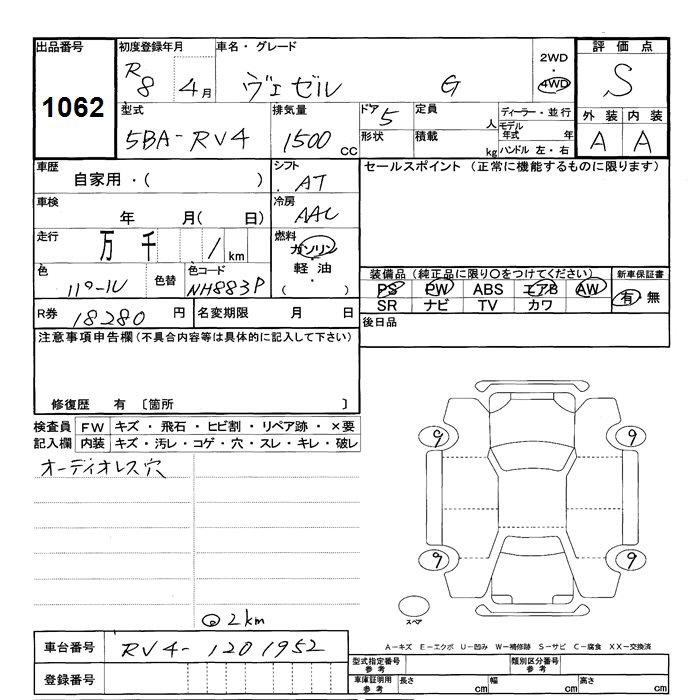 出品番号 初度登録年月 車名・グレード 2WD・4WD 評価点
1062 R8 4月 ヴェゼル G S
型式 排気量 ドア 5 定員 人 ディーラー・並行 外装 内装
5BA-RV4 1500 CC 形状 積載 kg モデル年式 年 ハンドル 左・右 A A
車歴 シフト セールスポイント (正常に機能するものに限ります)
自家用・( ) AT
車検 冷房
年 月( 日) AAC
走行 燃料
万 千 1 km ガソリン
軽油
・( )
色 色替 色コード 装備品 (純正品に限り○をつけてください) 新車保証書
NH883P PS PW ABS エアB AW 有・無
SR ナビ TV カワ
R券 18280 円 名変期限 月 日 後日品
注意事項申告欄 (不具合内容等は具体的に記入して下さい)
修復歴 有 〔箇所 〕
検査員 FW キズ・飛石・ヒビ割・リペア跡・×要
記入欄 内装 キズ・汚レ・コゲ・穴・スレ・キレ・破レ
オーディオレス穴
9 9
9 9
スペア
◎2km
A－キズ E－エクボ U－凹み W－補修跡 S－サビ C－腐食 XX－交換済
車台番号 RV4-1201952
登録番号
型式指定番号 参考 類別区分番号 参考
車庫証明用 参考 長さ cm 幅 cm 高さ cm